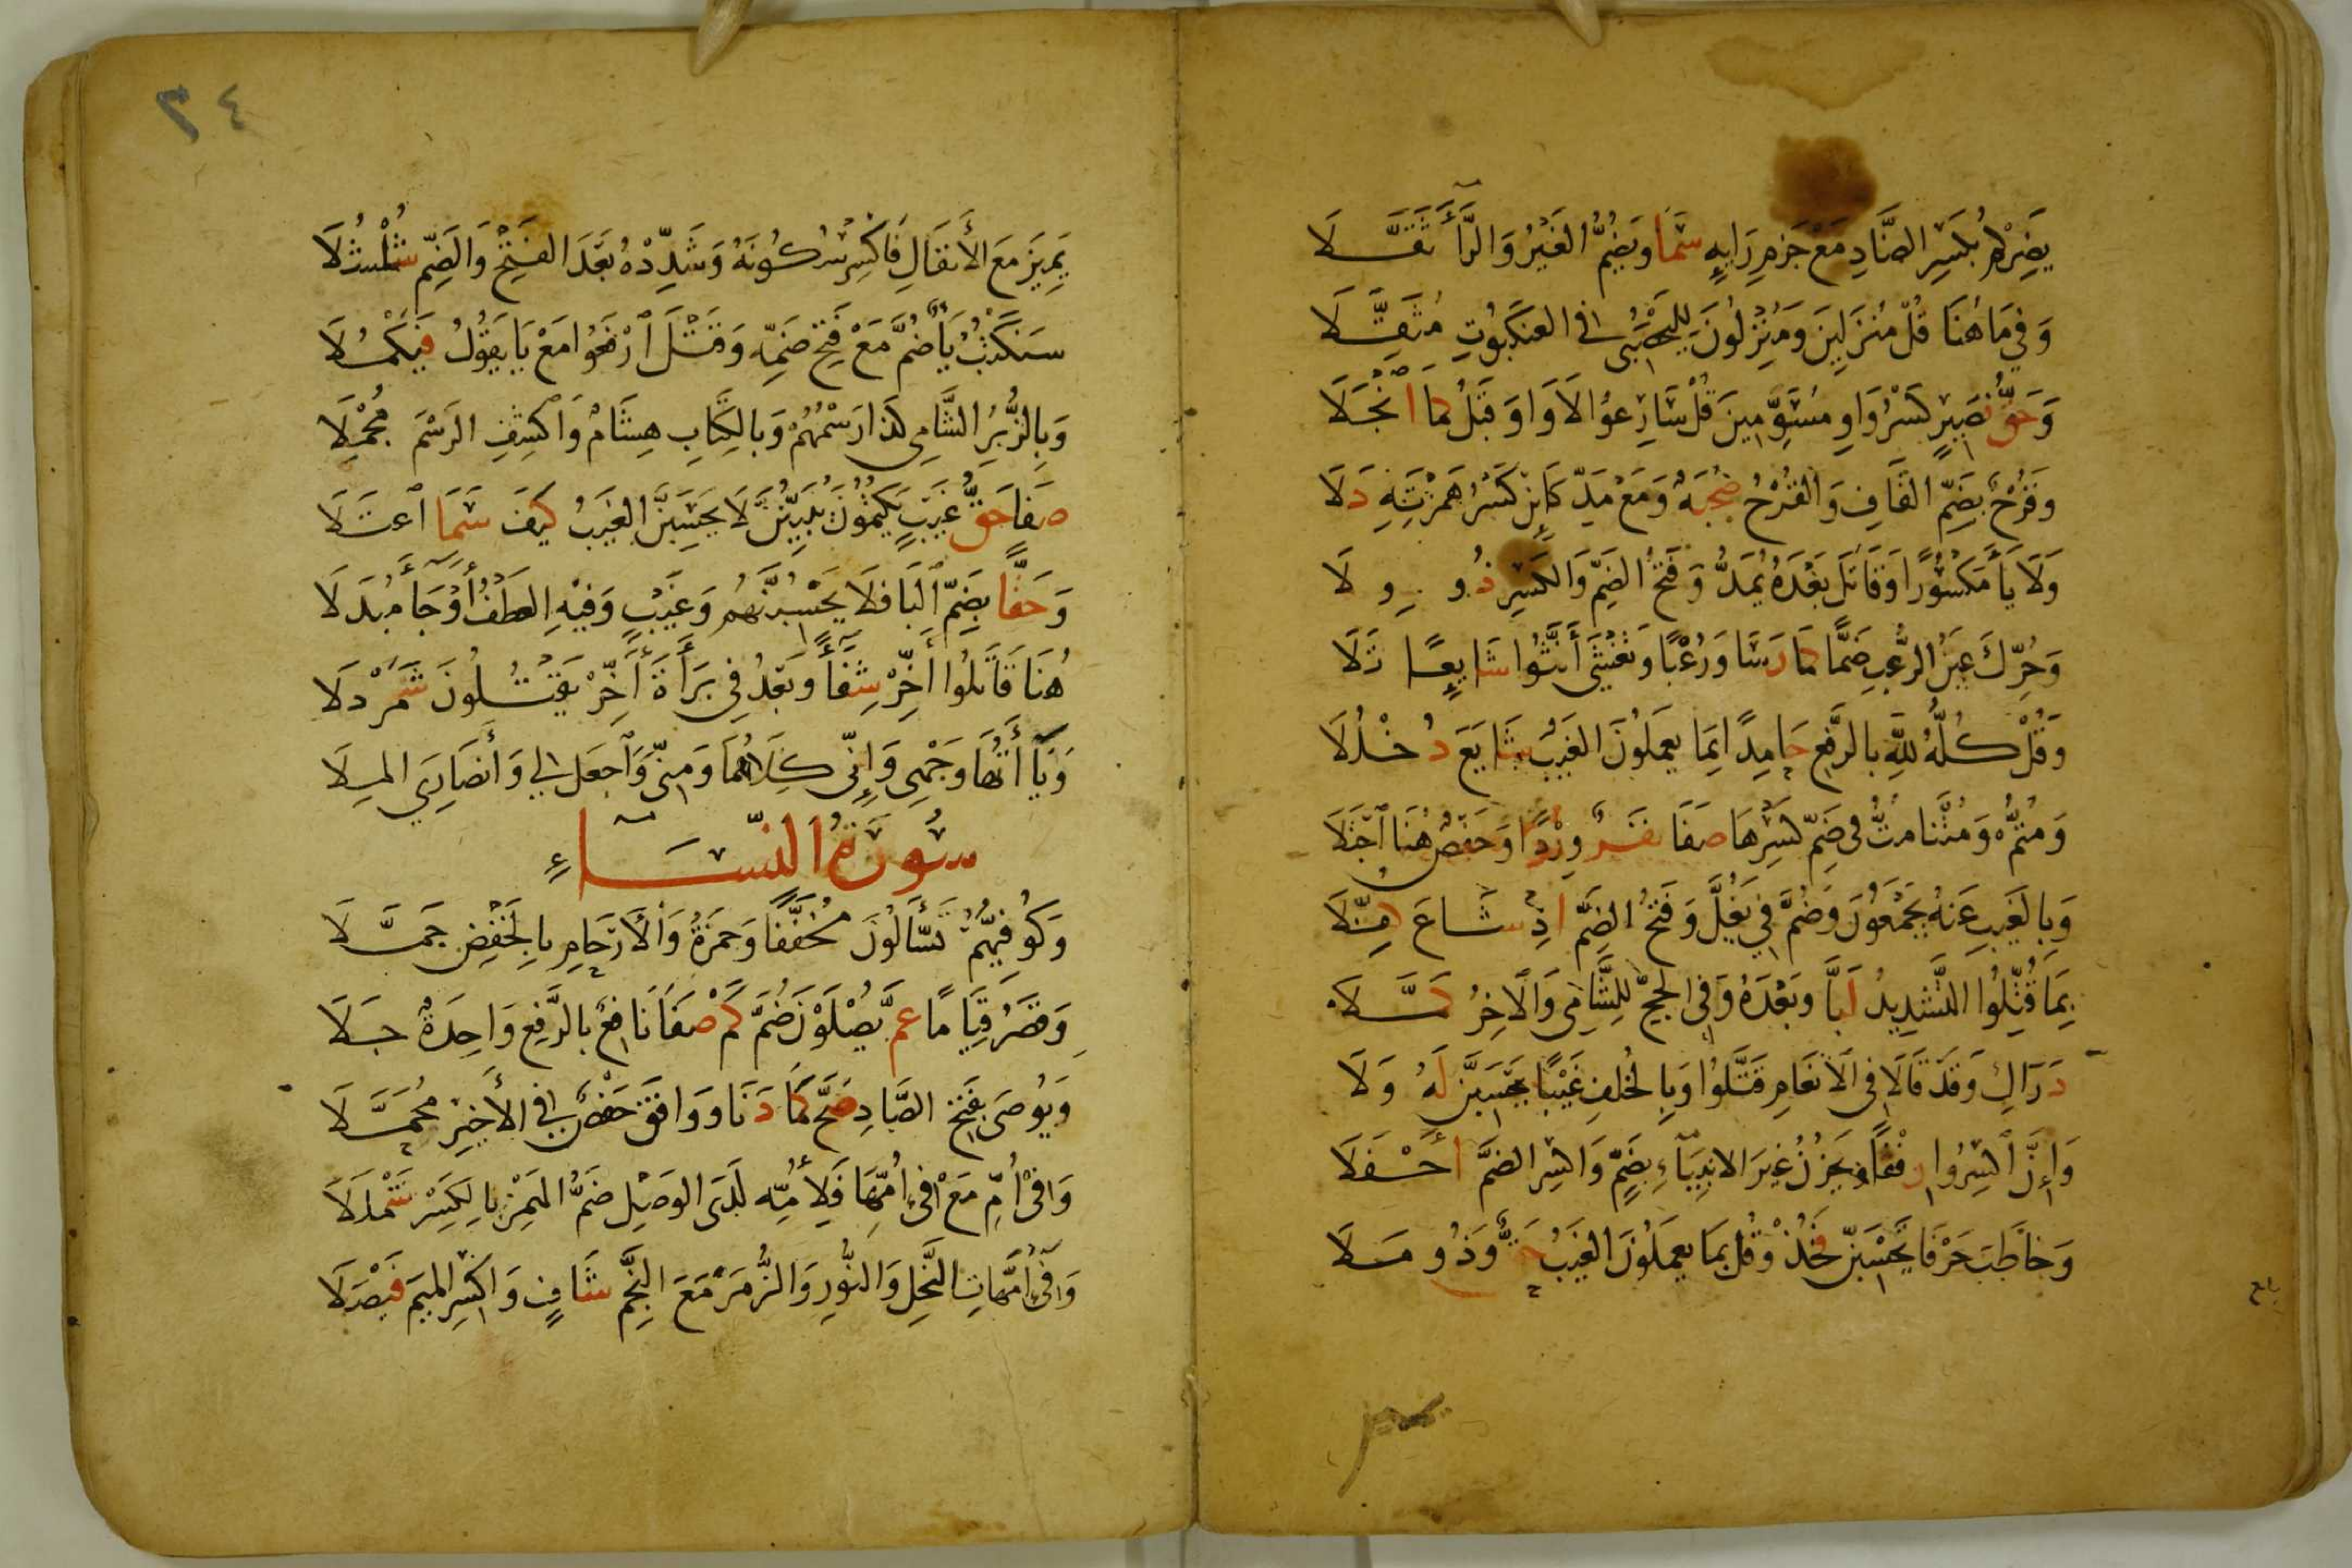 يَضِرْكُمْ بِكَسْرِ الضَّادِ مَعْ جَزْمِ رَايِهِ سَمَا وَيَضُمُّ الغَيْرُ وَالرَّاءَ ثَقَّلَا
وَفِيمَا هُنَا قُلْ مُنْزَلِينَ وَمُنْزِلُونَ لِلْيَحْصُبِي فِي العَنْكَبُوتِ مُثَقِّلَا
وَحَقُّ نَصِيرٍ كَسْرُ وَاوِ مُسَوِّمِينَ قُلْ سَارِعُوا لَا وَاوَ قَبْلُ كَمَا انْجَلَا
وَقَرْحٌ بِضَمِّ القَافِ وَالقَرْحُ صُحْبَةٌ وَمَعْ مَدِّ كَائِنْ كَسْرُ هَمْزَتِهِ دَلَا
وَلَا يَاءَ مَكْسُورًا وَقَاتَلَ بَعْدَهُ يُمَدُّ وَفَتْحُ الضَّمِّ وَالكَسْرِ ذُو وِلَا
وَحُرِّكَ عَيْنُ الرُّعْبِ ضَمًّا كَمَا رَسَا وَرُعْبًا وَيَغْشَى أَنَّثُوا شَايِعًا تَلَا
وَقُلْ كُلُّهُ لِلَّهِ بِالرَّفْعِ حَامِدًا بِمَا يَعْمَلُونَ الغَيْبُ شَايَعَ دُخْلُلَا
وَمُتُّمْ وَمُتْنَا مُتُّ فِي ضَمِّ كَسْرِهَا صَفَا نَفَرٌ وِرْدًا وَحَفْصٌ هُنَا اجْتَلَا
وَبِالغَيْبِ عَنْهُ يَجْمَعُونَ وَضُمَّ فِي يَغُلَّ وَفَتْحُ الضَّمِّ اذْ شَاعَ كُفِّلَا
بِمَا قُتِّلُوا التَّشْدِيدُ لَبَّا وَبَعْدَهُ وَفِي الحَجِّ لِلشَّامِي وَالآخِرُ كَمَّلَا
دَرَاكِ وَقَدْ قَالَا فِي الأَنْعَامِ قَتَّلُوا وَبِالخُلْفِ غَيْبًا يَحْسَبَنَّ لَهُ وَلَا
وَإِنَّ اكْسِرُوا رِفْقًا وَيَحْزُنُ غَيْرَ الأَنْبِيَاءِ بِضَمٍّ وَاكْسِرِ الضَّمَّ أَحْفَلَا
وَخَاطَبَ حَرْفَا يَحْسَبَنَّ فَخُذْ وَقُلْ بِمَا يَعْمَلُونَ الغَيْبُ حَقٌّ وَذُو مَلَا
بلغ
٣٤
يَمِيزَ مَعَ الأَنْفَالِ فَاكْسِرْ سُكُونَهُ وَشَدِّدْهُ بَعْدَ الفَتْحِ وَالضَّمِّ شُلْشُلَا
سَنَكْتُبُ يَاءٌ ضُمَّ مَعْ فَتْحِ ضَمِّهِ وَقَتْلَ ارْفَعُوا مَعْ يَا يَقُولُ فَيَكْمُلَا
وَبِالزُّبُرِ الشَّامِي كَذَا رَسْمُهُمْ وَبِالكِتَابِ هِشَامٌ وَاكْشِفِ الرَّسْمَ مُجْمِلَا
صَفَا حَقُّ غَيْبٍ يَكْتُمُونَ يُبَيِّنُنَّ لَا يَحْسَبَنَّ الغَيْبُ كَيْفَ سَمَا اعْتَلَا
وَحَقًّا بِضَمِّ البَا فَلَا يَحْسِبُنَّهُمْ وَغَيْبٍ وَفِيهِ العَطْفُ أَوْ جَاءَ مُبْدَلَا
هُنَا قَاتَلُوا أَخِّرْ شِفَاءً وَبَعْدُ فِي بَرَاءَةَ أَخِّرْ يَقْتُلُونَ شَمَرْدَلَا
وَيَاءَاتُهَا وَجْهِي وَإِنِّي كِلَاهُمَا وَمِنِّي وَاجْعَل لِي وَأَنْصَارِيَ المِلَا
سُورَةُ النِّسَاءِ
وَكُوفِيُّهُمْ تَسَّاءَلُونَ مُخَفَّفًا وَحَمْزَةُ وَالأَرْحَامِ بِالخَفْضِ جَمَّلَا
وَقَصْرُ قِيَامًا عَمَّ يُصْلَوْنَ ضُمَّ كَمْ صَفَا نَافِعٌ بِالرَّفْعِ وَاحِدَةٌ جَلَا
وَيُوصَى بِفَتْحِ الصَّادِ صَحَّ كَمَا دَنَا وَوَافَقَ حَفْصٌ فِي الأَخِيرِ مُجَمَّلَا
وَفِي أُمِّ مَعْ فِي أُمِّهَا فَلِأُمِّهِ لَدَى الوَصْلِ ضَمُّ الهَمْزِ بِالكَسْرِ شَمْلَلَا
وَفِي أُمَّهَاتِ النَّحْلِ وَالنُّورِ وَالزُّمَرْ مَعَ النَّجْمِ شَافٍ وَاكْسِرِ المِيمَ فَيْصَلَا